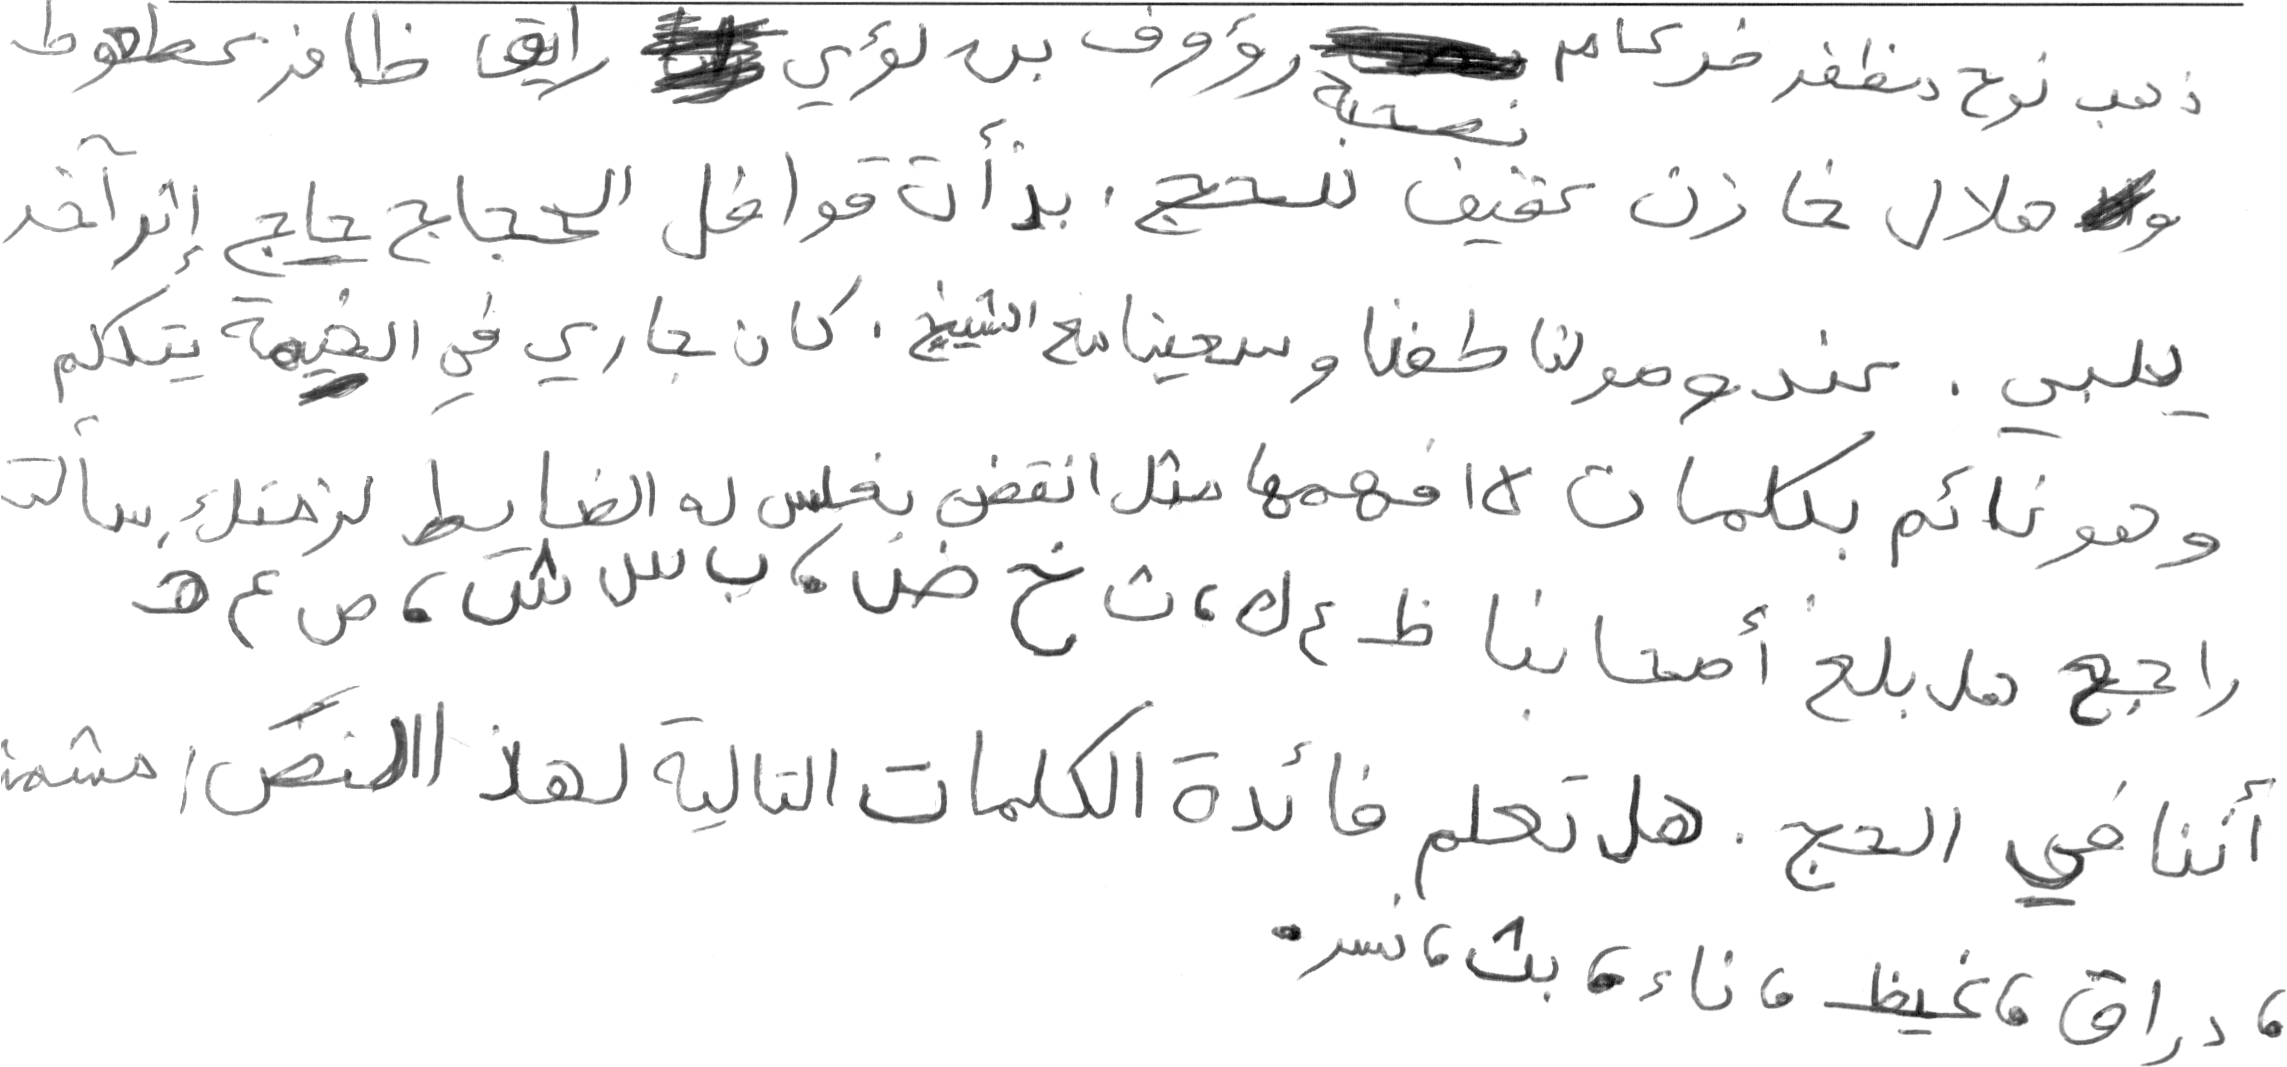 ذهب نوح مظفر ضرغام بصحبة رؤوف بن لؤي رايق ظافر عطعوط
و هلال خازن عفيف للحج . بدأت قوافل الحجاج حاج إثر آخر
يلبي . عند وصولنا طفنا وسعينا مع الشيخ . كان جاري في الخيمة يتكلم
وهو نائم بكلمات لا افهمها مثل انقض يغلس له الضابط لزحتك سألت
راجح هل بلغ أصحابنا ظ ع ك ، ث خ ض ، ب س ش ، ص ع هـ
أننا في الحج . هل تعلم فائدة الكلمات التالية لهذا النص
، دراق ، غيظ ، ناء ، بث ، نسر .